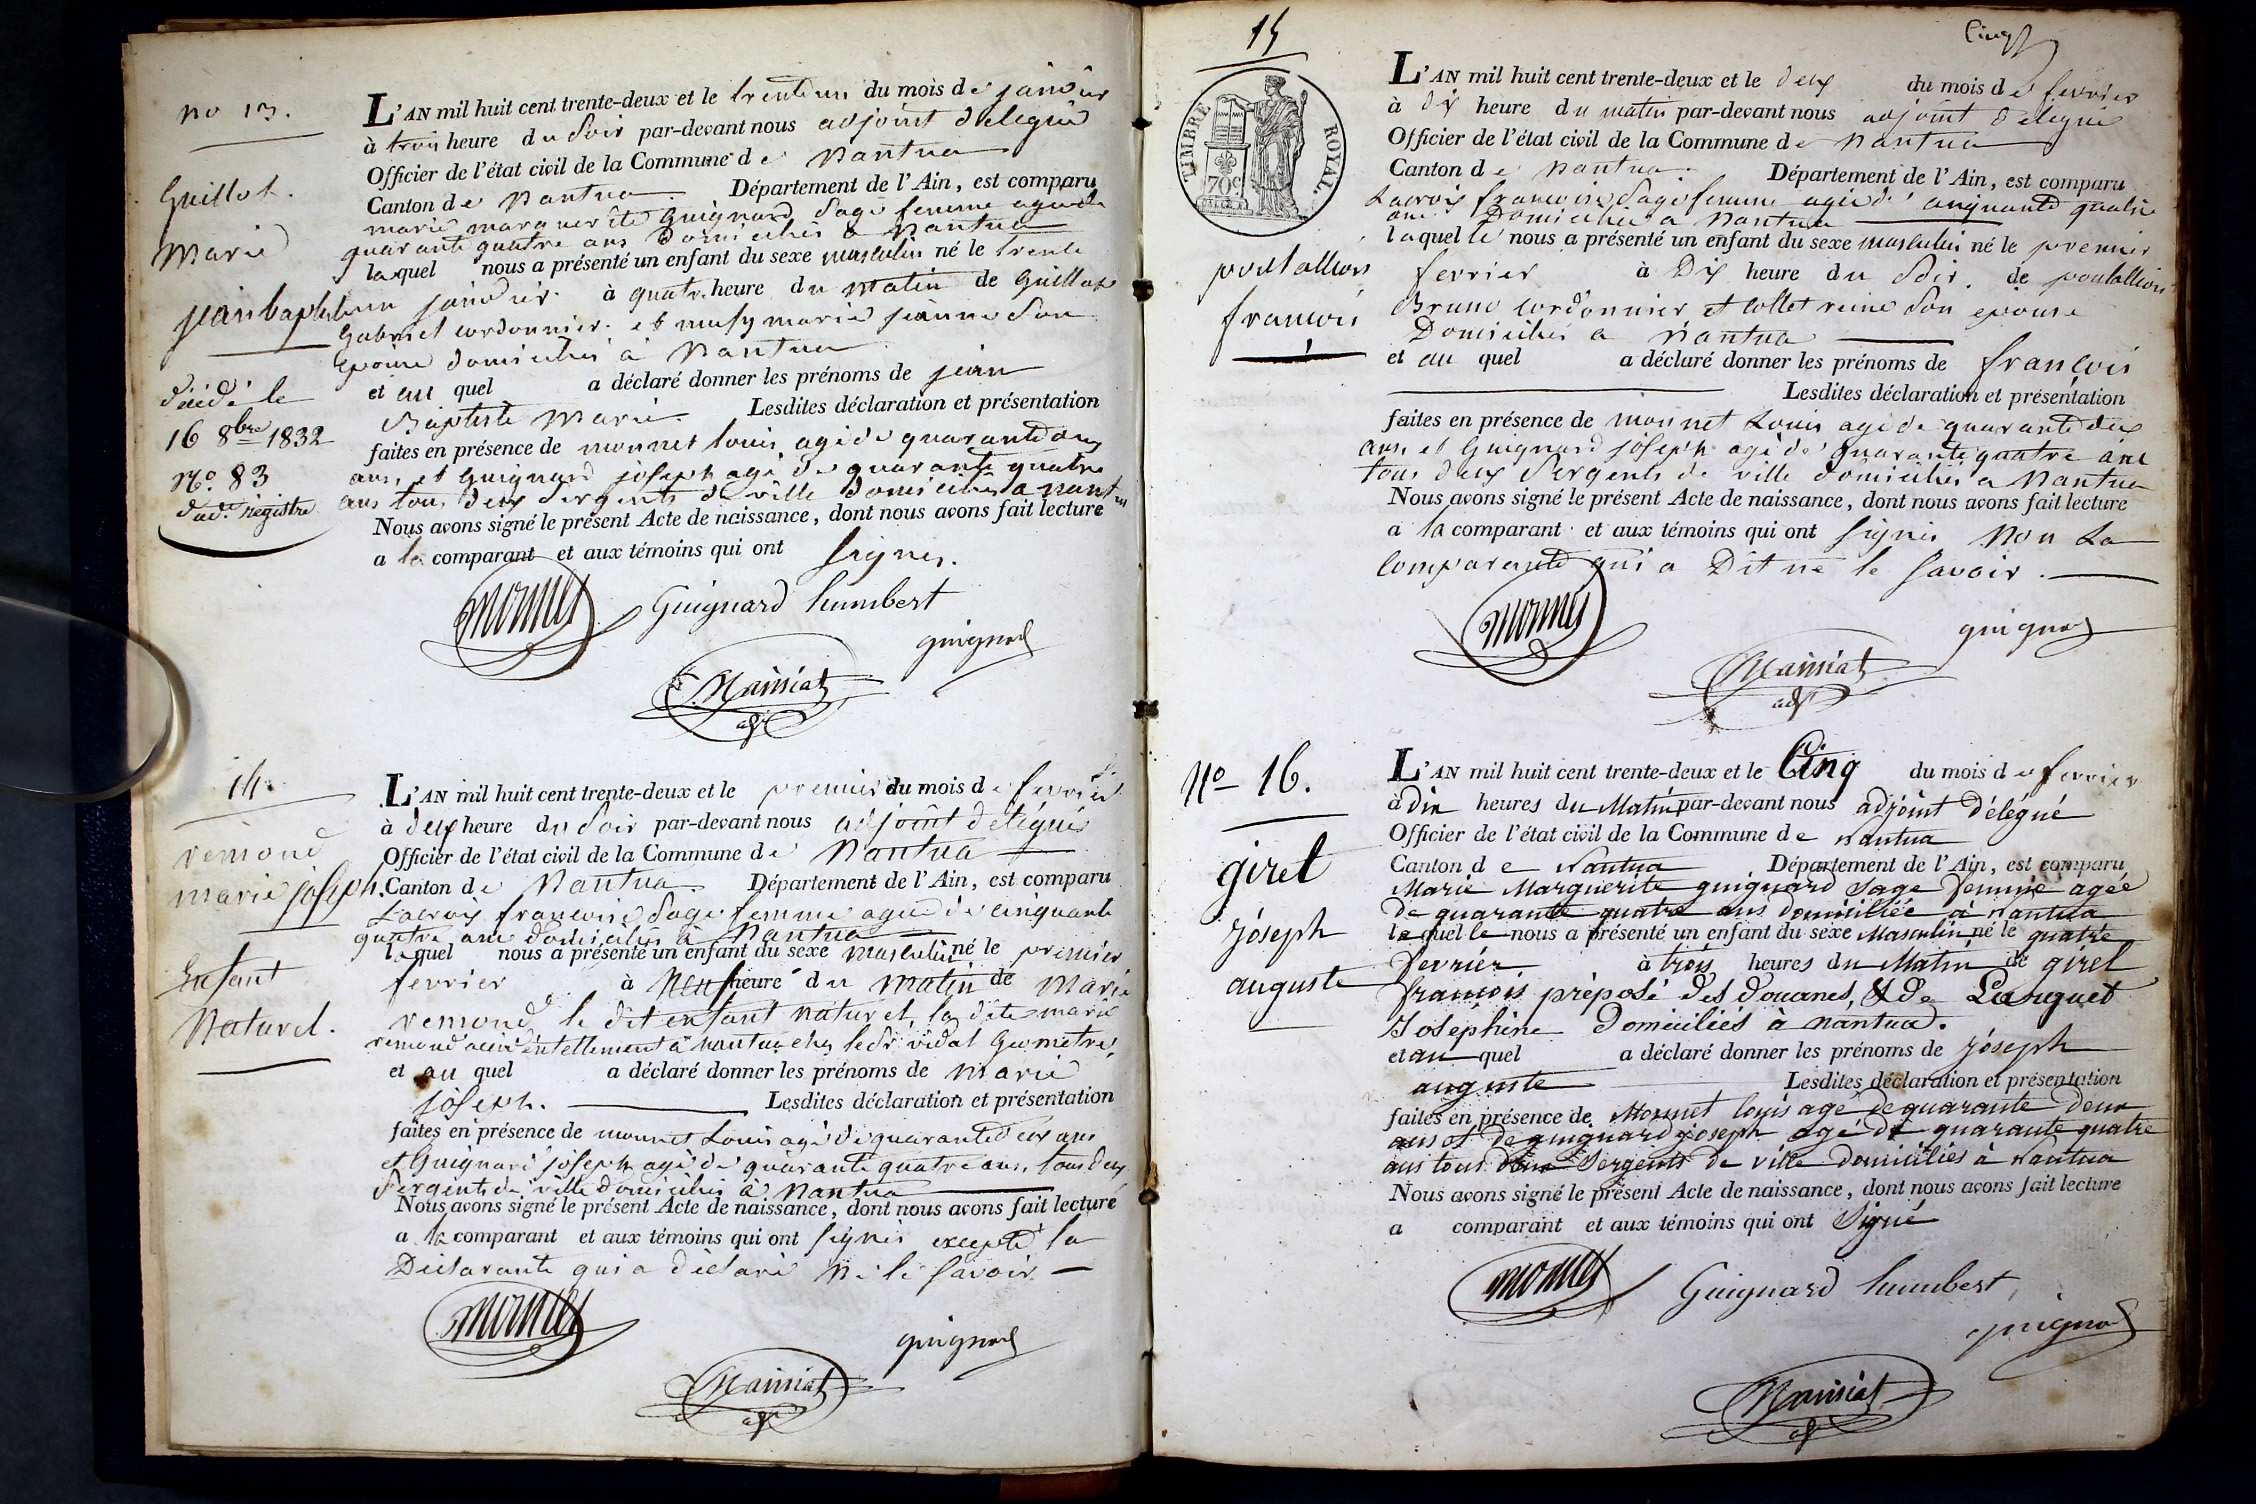 no 13.
Guillot.
Marie
jean baptiste
décédé le
16 8bre 1832
No. 83
dud. registre
L'AN mil huit cent trente-deux et le trente un du mois de janvier
à trois heure du soir par-devant nous adjoint délégué
Officier de l'état civil de la Commune de Nantua
Canton de Nantua. Département de l'Ain, est comparu
marie marguerite Guignard sage femme agée de
quarante quatre ans domiciliée à Nantua
laquel nous a présenté un enfant du sexe masculin né le trente
un janvier à quatre heure du matin de Guillot
Gabriel cordonnier et musy marie jeanne son
epouse domiciliés à Nantua
et au quel a déclaré donner les prénoms de jean
Baptiste Marie. Lesdites déclaration et présentation
faites en présence de monnet louis agé de quarante deux
ans, et Guignard joseph agé de quarante quatre
ans tous deux sergents de ville domiciliés a nantua
Nous avons signé le présent Acte de naissance, dont nous avons fait lecture
a la comparant et aux témoins qui ont signés.
monnet Guignard humbert
guignard
Mainiat
adjt
14.
remond
marie joseph.
Enfant
Naturel.
L'AN mil huit cent trente-deux et le premier du mois de fevrier
à deux heure du soir par-devant nous adjoint délégué
Officier de l'état civil de la Commune de Nantua
Canton de Nantua. Département de l'Ain, est comparu
Lacroix francoise sage femme agée de cinquante
quatre ans domiciliée à Nantua
laquel nous a présenté un enfant du sexe masculin né le premier
fevrier à Neuf heure du matin de Marie
remond le dit enfant naturel, la dite marie
remond accidentellement à nantua chez le Sr. vidal Geometre,
et au quel a déclaré donner les prénoms de marie
joseph. Lesdites déclaration et présentation
faites en présence de monnet Louis agé de quarante deux ans
et Guignard joseph agé de quarante quatre ans, tous deux
sergents de ville domiciliés à Nantua
Nous avons signé le présent Acte de naissance, dont nous avons fait lecture
a la comparant et aux témoins qui ont signés excepté la
Déclarante qui a déclaré ne le savoir
monnet
guignard
Mainiat
adjt
Cinq
15
TIMBRE ROYAL.
70c
poulallion
francois
L'AN mil huit cent trente-deux et le deux du mois de fevrier
à dix heure du matin par-devant nous adjoint délégué
Officier de l'état civil de la Commune de Nantua
Canton de Nantua. Département de l'Ain, est comparu
Lacroix francoise sage femme agée de cinquante quatre
ans Domiciliée a Nantua
laquelle nous a présenté un enfant du sexe masculin né le premier
fevrier à Dix heure du soir. de poulallion
Bruno cordonnier et collet reine son epouse
Domiciliés a Nantua
et au quel a déclaré donner les prénoms de françois
Lesdites déclaration et présentation
faites en présence de monnet Louis agé de quarante deux
ans, et Guignard joseph agé de quarante quatre ans
tous deux sergents de ville domiciliés a Nantua
Nous avons signé le présent Acte de naissance, dont nous avons fait lecture
a la comparant et aux témoins qui ont signés Non La
comparante qui a Dit ne le savoir.
monnet
guignard
Mainiat
adjt
No 16.
girel
jóseph
auguste
L'AN mil huit cent trente-deux et le Cinq du mois de fevrier
à dix heures du Matin par-devant nous adjoint délégué
Officier de l'état civil de la Commune de nantua
Canton de Nantua Département de l'Ain, est comparu
Marie Marguerite guignard sage femme agée
de quarante quatre ans domiciliée à nantua
laquelle nous a présenté un enfant du sexe Masculin né le quatre
fevrier à trois heures du Matin de girel
francois préposé des douanes, & de Larguet
Josephine Domiciliés à nantua.
et au quel a déclaré donner les prénoms de jóseph
auguste Lesdites déclaration et présentation
faites en présence de Monnet louis agé de quarante deux
ans et de guignard joseph agé de quarante quatre
ans tous deux Sergents de ville domiciliés à nantua
Nous avons signé le présent Acte de naissance, dont nous avons fait lecture
a comparant et aux témoins qui ont Signé
monnet Guignard humbert,
guignard
Mainiat
adjt